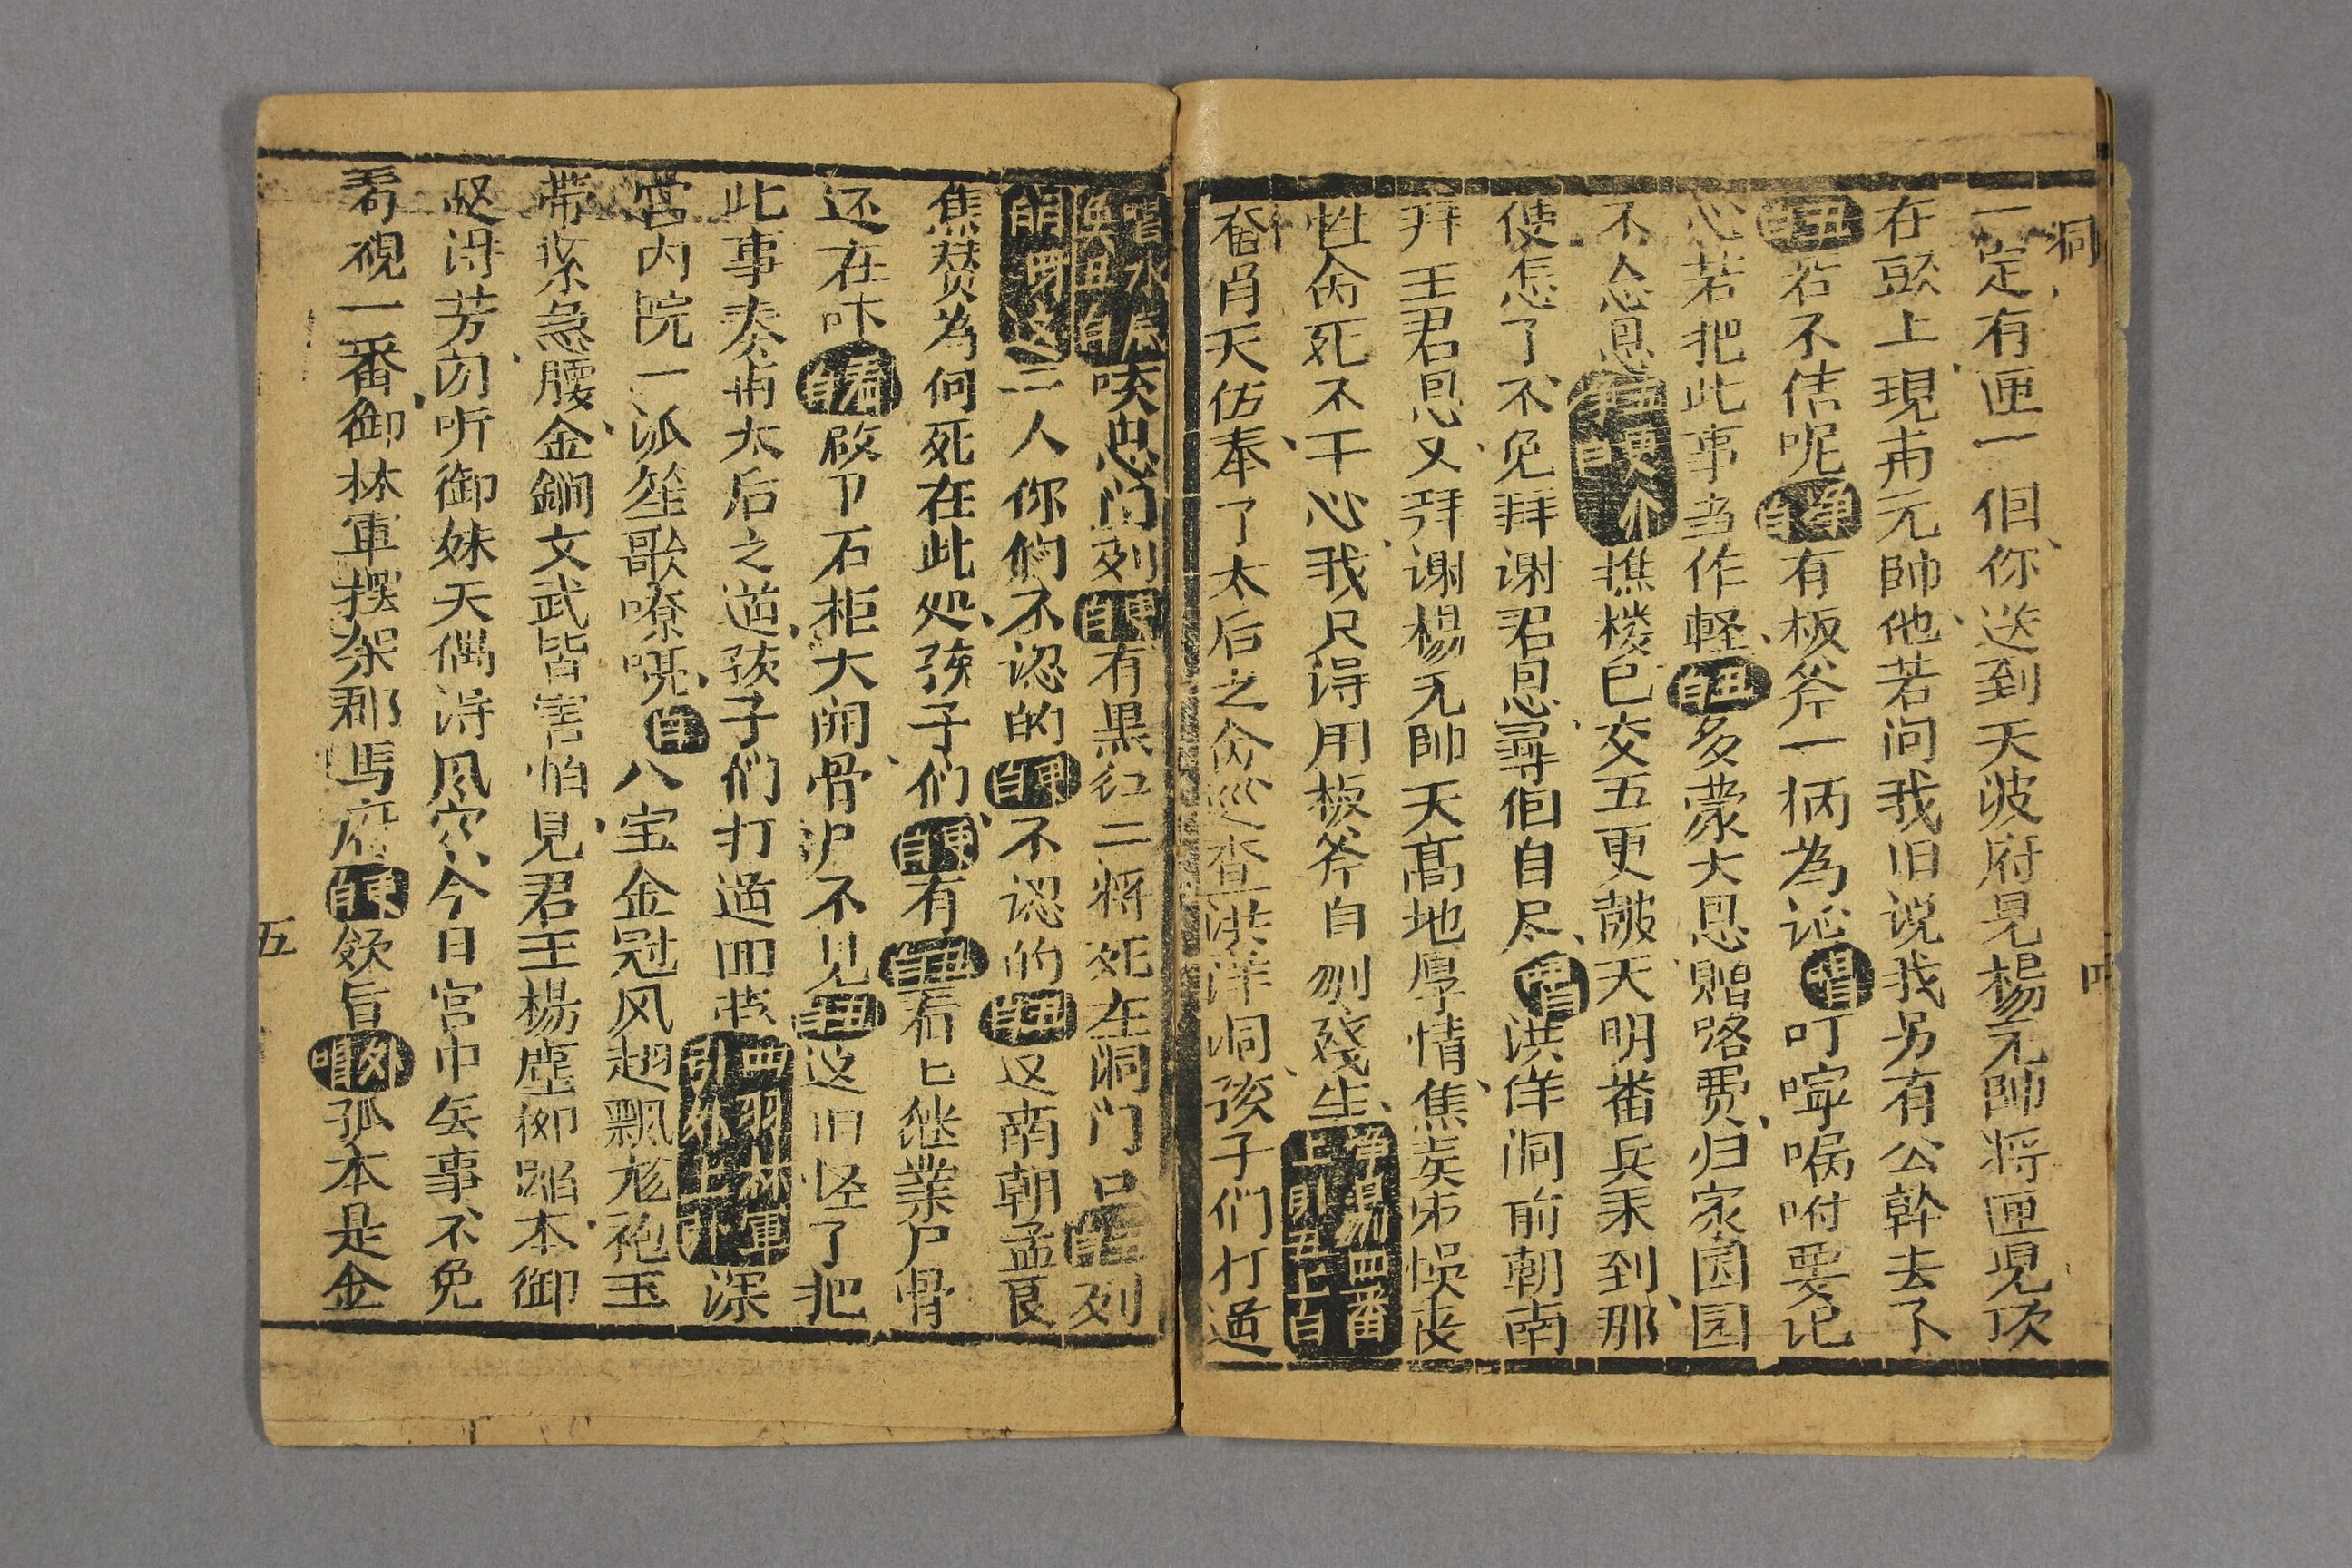 洞
一定有匣一個你送到天波府見楊元帥将匣児頂
在頭上現出元帥他若问我旧说我另有公幹去了
丑白若不信呢净白有板斧一柄為证唱叮嚀嘱咐要记
心若把此事当作軽丑白多蒙大恩贈路费归家园园
不忘恩更介白樵楼已交五更皷天明番兵来到那
使怎了不免拜谢君恩尋個自尽唱洪佯洞前朝南
拜王君恩又拜谢楊元帥天髙地厚情焦
性命死不干心我只得用板斧自刎殘生净四番上白
奋肖天佑奉了太后之命巡查洪洋洞孩子们打道
唱水底魚丑白唉思门列衆白有黒红二将死在洞门口列
二人你們不認的衆白不認的丑白这南朝孟良
焦赞為何死在此处孩子们衆白有丑白看上继業尸骨
还在呀看白啟下石柜大開骨尸不见丑白这旧怪了把
此事奏甫太后之道孩子們打道囬营四羽林軍引外上引深
宮内院一派笙歌嘹喨白八宝金冠风翅飄龙袍玉
帯紧急腰金鐧文武皆害怕見君王楊塵仰蹈本御
趙得芳勿听御妹天偶得风穴今日宫中無事不免
看視一番御林軍摆架郡馬府衆白领旨外唱孤本是金
五